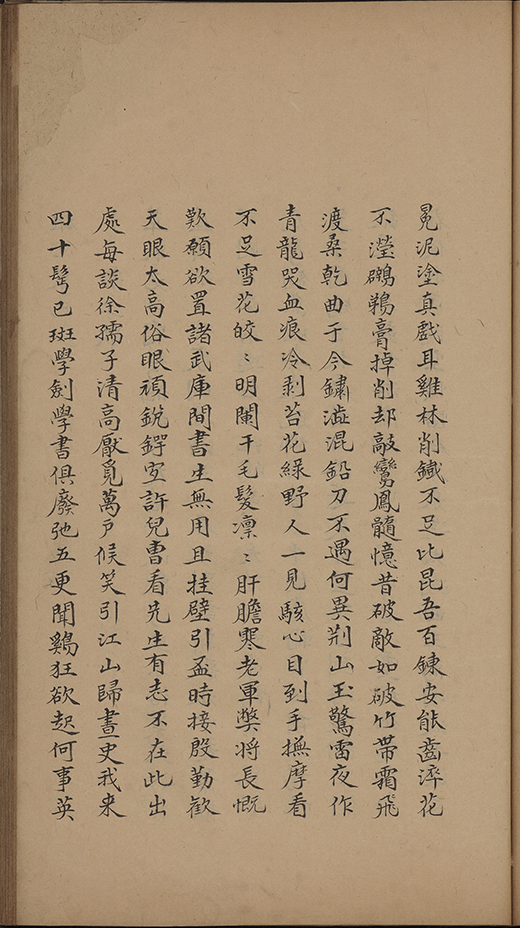 冕泥塗真戲耳雞林削鐵不足比昆吾百鍊安能齒淬花
不瀅鸊鵜膏掉削却敲鸞鳳髓憶昔破敵如破竹帶霜飛
渡桑乾曲于今鏽澁混鉛刀不遇何異荆山玉驚雷夜作
青龍哭血痕冷剥苔花緑野人一見駭心目到手撫摩看
不足雪花皎〻明闌干毛髮凛〻肝膽寒老軍獘将長慨
歎願欲置諸武庫間書生無用且挂壁引盃時接殷勤歡
天眼太高俗眼頑銳鍔寧許兒曹看先生有志不在此出
處每談徐孺子清高厭覓萬戶候笑引江山歸畫史我来
四十髩已斑學劍學書俱廢弛五更聞鷄狂欲起何事英